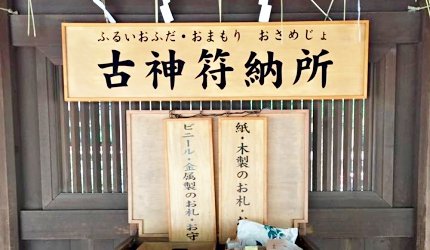 ふるいおふだ・おまもり おさめじょ
古神符納所
紙・木製のお札・
ビニール・金属製のお札・お守